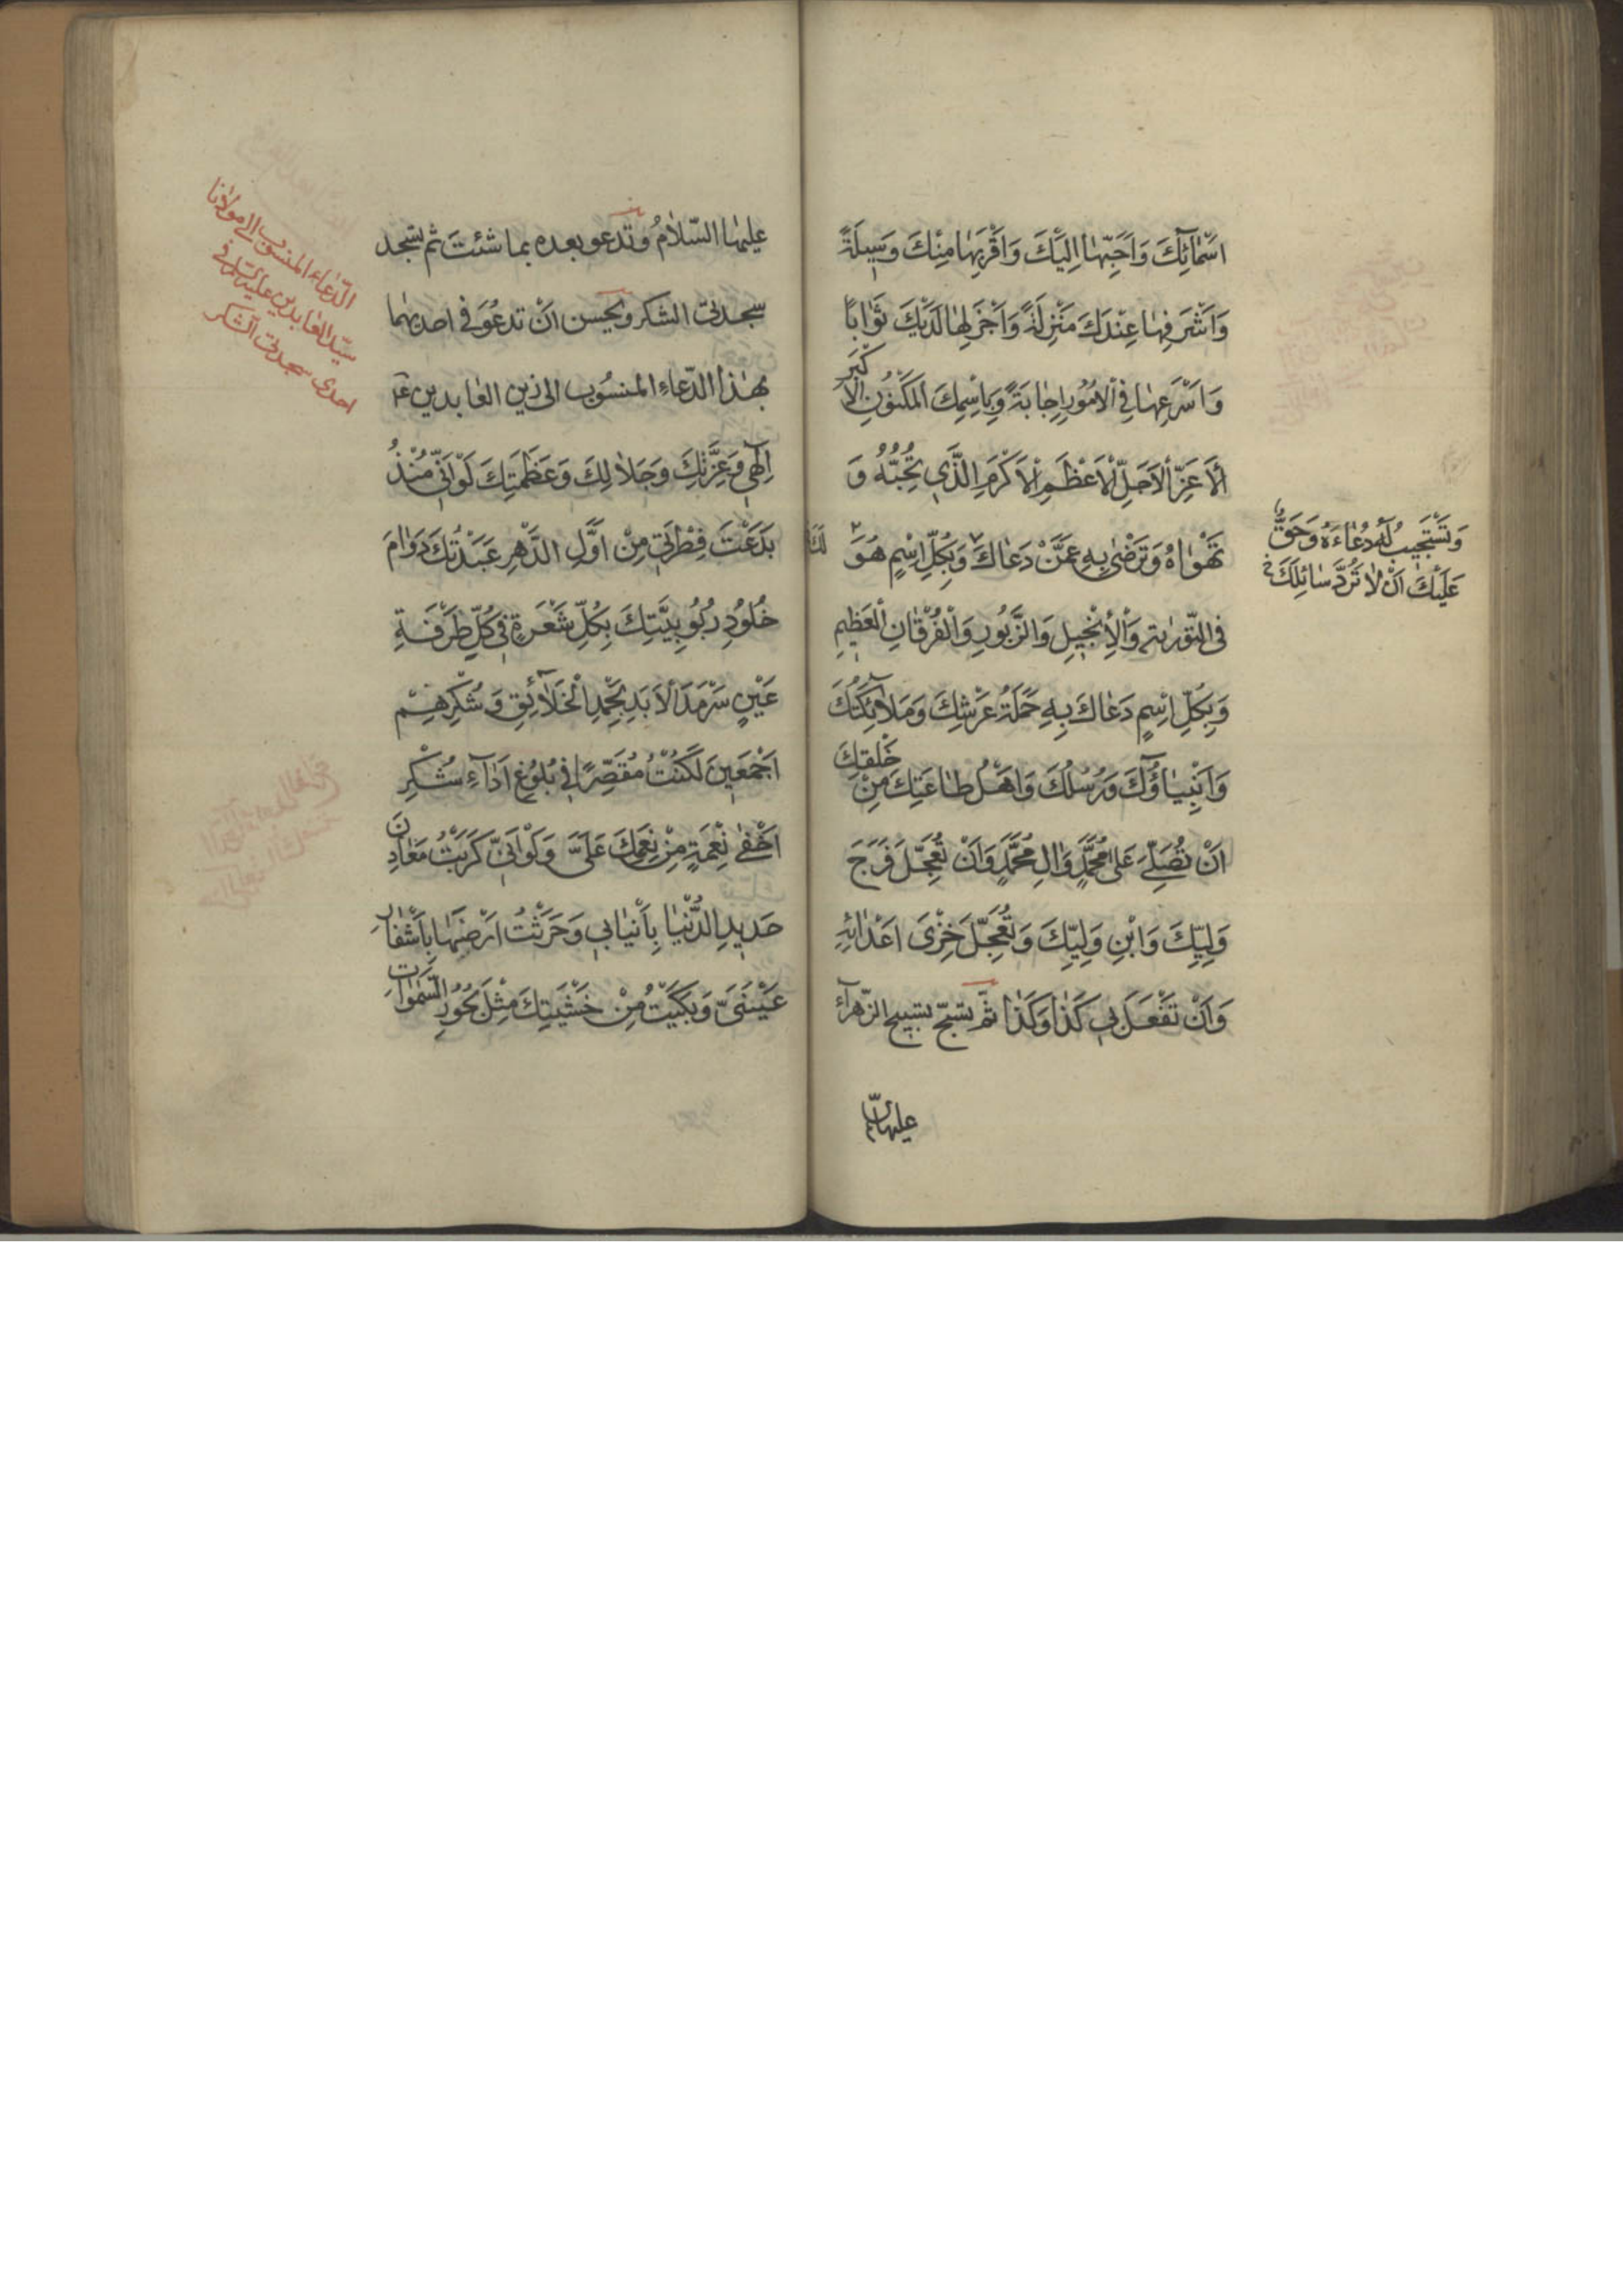 اَسْمٰائِكَ وَاَحَبِّهٰا اِلَيْكَ وَاَقْرَبِهٰا مِنْكَ وَسِيلَةً
وَاَشْرَفِهٰا عِنْدَكَ مَنْزِلَةً وَاَجْزَلِهٰا لَدَيْكَ ثَوٰابًا
وَاَسْرَعِهٰا فِى الْاُمُورِ اِجٰابَةً وَبِاسْمِكَ الْمَكْنُونِ الْاَكْبَرِ
الْاَعَزِّ الْاَجَلِّ الْاَعْظَمِ الْاَكْرَمِ الَّذِى تُحِبُّهُ وَ
تَهْوٰاهُ وَتَرْضٰى بِهِ عَمَّنْ دَعٰاكَ وَبِكُلِّ اِسْمٍ هُوَ لَكَ
وَتَسْتَجِيبُ لَهُ دُعٰاءَهُ وَحَقٌّ
عَلَيْكَ اَنْ لٰا تَرُدَّ سٰائِلَكَ
فِى التَّوْرٰيةِ وَالْاِنْجِيلِ وَالزَّبُورِ وَالْفُرْقٰانِ الْعَظِيمِ
وَبِكُلِّ اِسْمٍ دَعٰاكَ بِهِ حَمَلَةُ عَرْشِكَ وَمَلٰائِكَتُكَ
وَاَنْبِيٰاؤُكَ وَرُسُلُكَ وَاَهْلُ طٰاعَتِكَ مِنْ خَلْقِكَ
اَنْ تُصَلِّىَ عَلىٰ مُحَمَّدٍ وَالِ مُحَمَّدٍ وَاَنْ تُعَجِّلَ فَرَجَ
وَلِيِّكَ وَابْنِ وَلِيِّكَ وَتُعَجِّلَ خِزْىَ اَعْدٰائِهِ
وَاَنْ تَفْعَلَ بِى كَذٰا وَكَذٰا ثمّ تسبّح تسبيح الزّهرآء
عليها السّلم
عليهٰا السّلامُ وتدعو بعده بما شئتَ ثم تسجد
سجدتى الشكر ويحسن انْ تدعُوَ فى احديهٰما
بهٰذا الدّعاءِ المنسُوب الى زين العٰابدين ع
اِلٰهِى وَعِزَّتِكَ وَجَلٰالِكَ وَعَظَمَتِكَ لَوْ اَنِّى مُنْذُ
بَدَعْتَ فِطْرَتِى مِنْ اَوَّلِ الدَّهْرِ عَبَدْتُكَ دَوٰامَ
خُلُودِ رُبُوبِيَّتِكَ بِكُلِّ شَعْرَةٍ فِى كُلِّ طَرْفَةِ
عَيْنٍ سَرْمَدَ الْاَبَدِ بِحَمْدِ الْخَلٰائِقِ وَشُكْرِهِمْ
اَجْمَعِينَ لَكُنْتُ مُقَصِّرًا فِى بُلُوغِ اَدٰآءِ شُكْرِ
اَخْفٰى نِعْمَةٍ مِنْ نِعَمِكَ عَلَىَّ وَلَوْ اَنِّى كَرَبْتُ مَعٰادِنَ
حَدِيدِ الدُّنْيٰا بِاَنْيٰابِى وَحَرَثْتُ اَرْضَهٰا بِاَشْفٰارِ
عَيْنَىَّ وَبَكَيْتُ مِنْ خَشْيَتِكَ مِثْلَ بُحُورِ السَّمٰوٰاتِ
الدّعاء المنسوب الى مولانا
سيّد العٰابدين عليه السّلم فى
احدى سجدتى الشكر